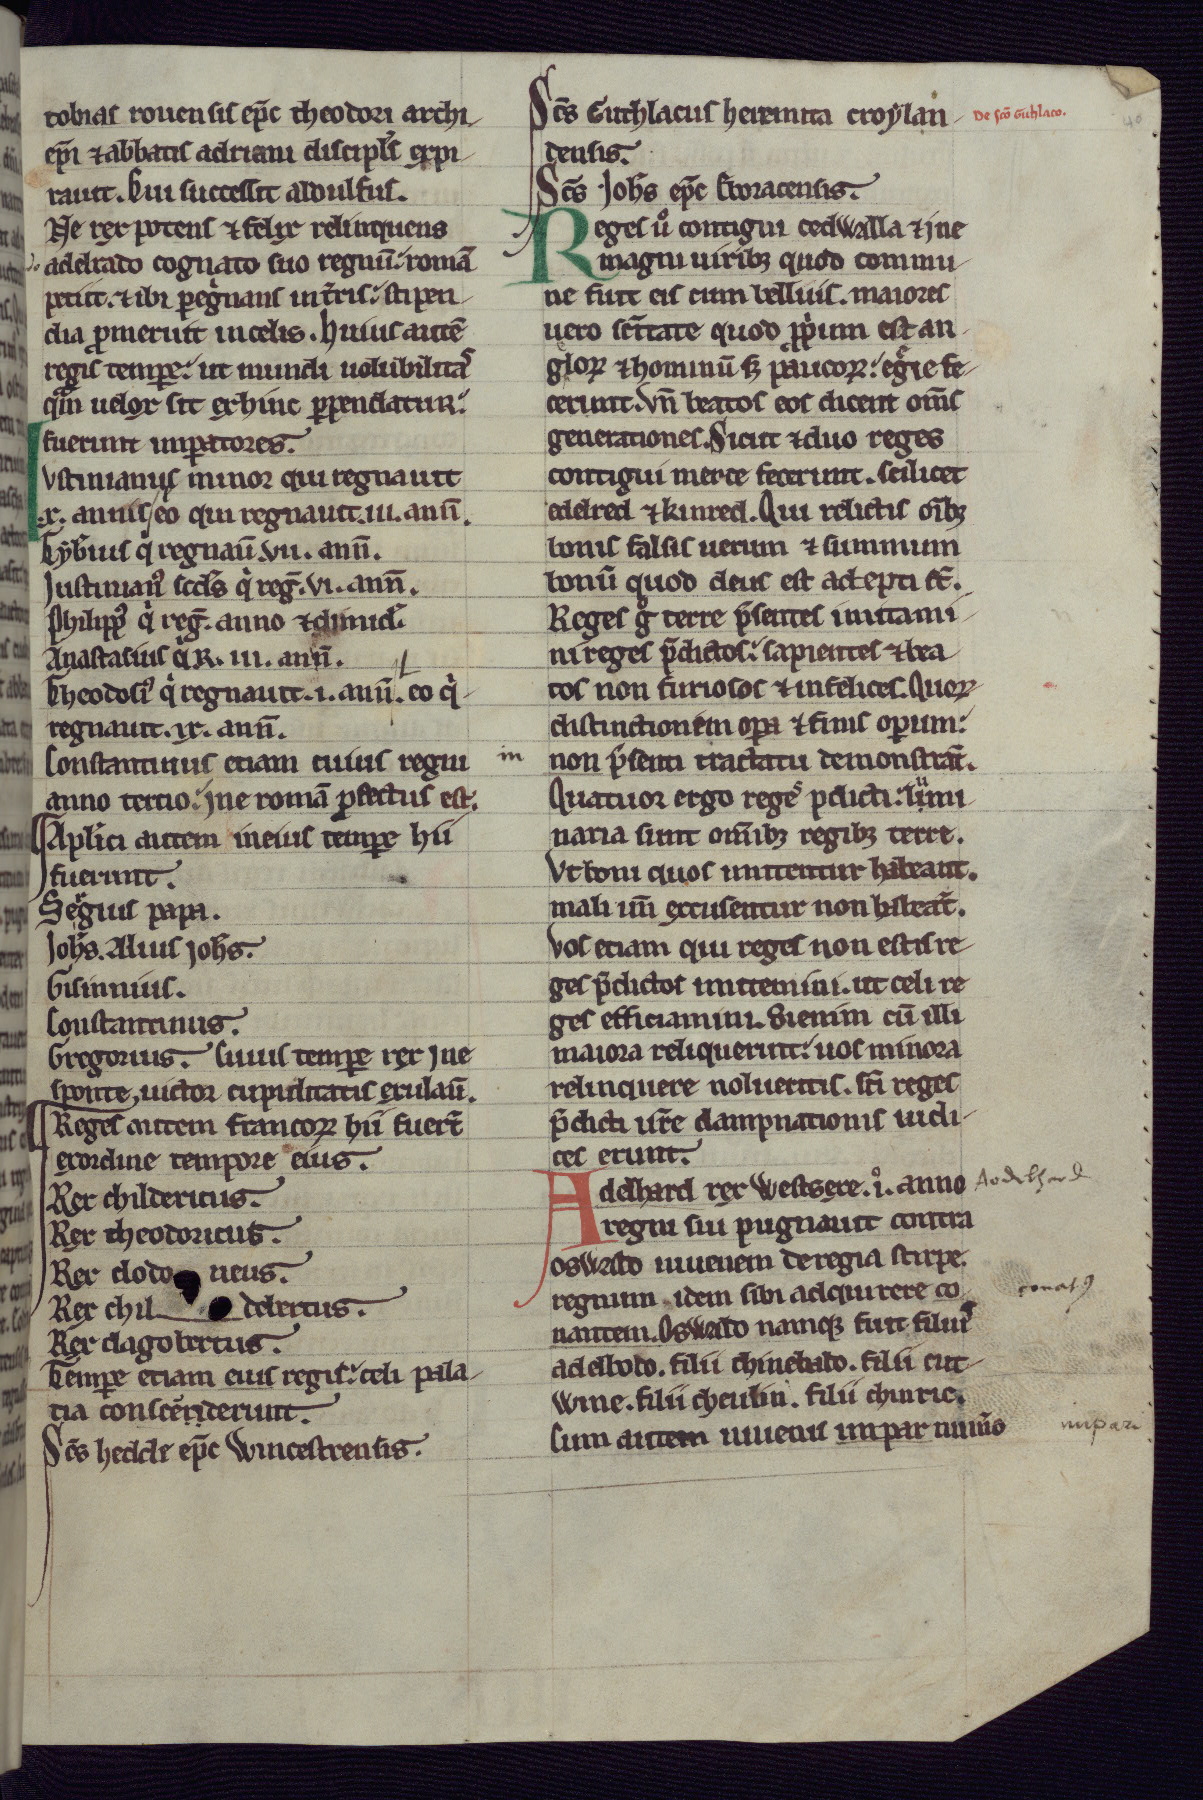 tobias rouensis ep̃c theodori archi
ep̃i ⁊ abbatis adriani discipl's expi
rauit. Cui successit aldulfus.
Ne rex potens ⁊ felix relinquens
adelrado cognato suo regnũ: romã
petiit. ⁊ ibi peg̃nans in t̃ris: stipen
dia p̃meruit in celis. huius autẽ
regis tempe: ut mundi uolubilitas
qm̃ uelox sit exhinc ppendatur:
fuerunt impatores.
Vstinianus minor qui regnauit
.x. annis eo qui regnauit. iii. anñ.
Tyb'ius q̃ regnaũ. vii. anñ.
Justinian' scd's q̃ reg̃. vi. anñ.
Philipp' q̃ reg̃. anno ⁊ dimid'.
Anastasius q̃ R. iii. anñ.
Theodosi' q̃ regnauit. i. anñ. eo q̃
regnauit. ix. anñ.
Constantinus etiam cuius regni
anno tertio: Jne romã pfectus est.
Apl'ici autem in eius tempe hii
fuerunt.
Sergius papa.
Joh's. Alius Joh's.
Gisinnius.
Constantinus.
Gregorius. Cuius tempe rex Jne
sponte, uictor cupiditatis exulaũ.
Reges autem francoꝝ hii fuer̃t
ex ordine tempore eius.
Rex childericus.
Rex theodoricus.
Rex clodo ueus.
Rex chil debertus.
Rex dagobertus.
Tempe etiam eius regis: celi pala
tia conscenderunt.
Sc̃s hedde ep̃c Wincestrensis.
Sc̃s Guthlacus heremita croylan
densis.
De sc̃o Guthlaco.
40
Sc̃s Joh's ep̃c Eboracensis.
Reges u° contigui cedwalla ⁊ Jne
magni uiribꝫ quod commu
ne fuit eis cum belluis. maiores
uero sc̃itate quod pp̃ium est an
gloꝝ ⁊ hominũ sꝫ paucoꝝ: eg̃ie fe
cerunt. Vñ beatos eos dicent om̃s
generationes. Sicut ⁊ duo reges
contigui merce fecerunt. scilicet
edelred ⁊ kinred. Qui relictis oĩbꝫ
bonis falsis uerum ⁊ summum
bonũ quod deus est adepti s̃t.
Reges g° terre p̃sentes imitami
ni reges p̃dictos: sapientes ⁊ bea
tos non furiosos ⁊ infelices. Quoꝝ
distinctionem opa ⁊ finis operum:
in
non p̃senti tractatu demonstrãt.
Quatuor ergo reges p̃dicti: lumi
naria sunt omĩbꝫ regibꝫ terre.
Vt boni quos imitentur habeant.
mali uñ excusentur non habeãt.
Vos etiam qui reges non estis re
ges p̃dictos imitemini. ut celi re
ges efficiamini. Si enim cũ illi
maiora reliquerint: uos minora
relinquere nolueritis. sc̃i reges
p̃dicti ur̃e dampnationis iudi
ces erunt.
Adelhard rex Westsexe. i°. anno
Aodelhard
regni sui pugnauit contra
oswald iuuenem de regia stirpe.
regnum idem sibi adquirere co
conat'
nantem. Oswald namq; fuit filius
adelbold. filii chinebald. filii cut
wine. filii cheulin. filii chinric.
Cum autem iuuenis impar num̃o
impari